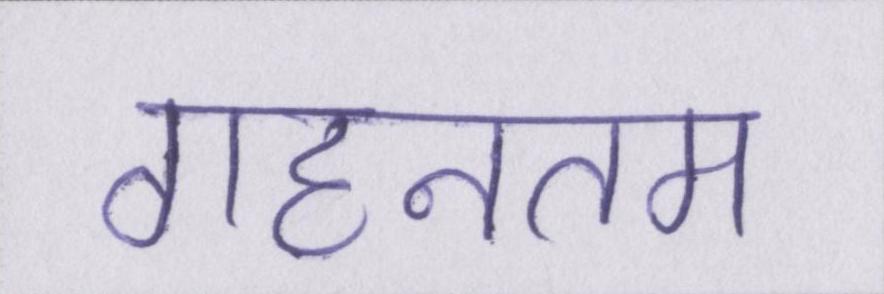 गहनतम